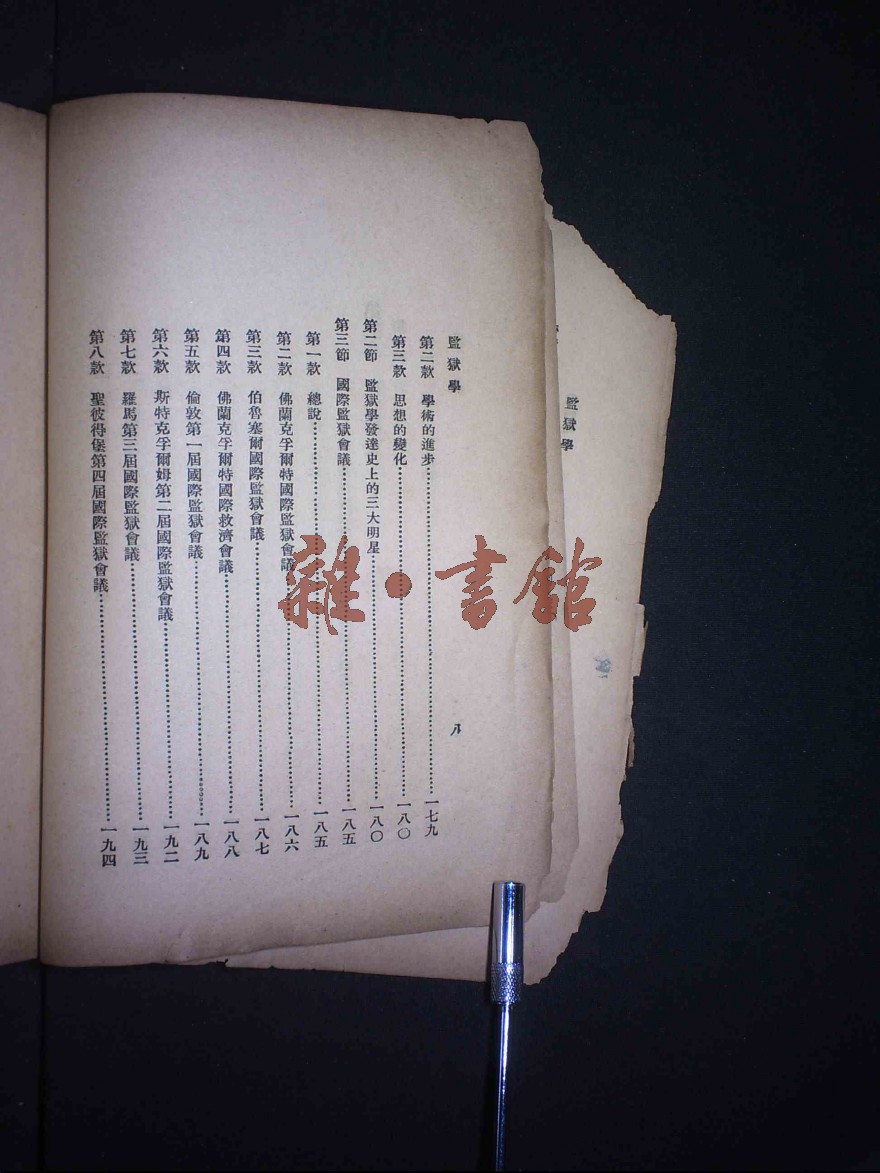 監獄學
八
第二款 學術的進步⋯⋯一七九
第三款 思想的變化⋯⋯一八〇
第二節 監獄學發達史上的三大明星⋯⋯一八〇
第三節 國際監獄會議⋯⋯一八五
第一款 總說⋯⋯一八五
第二款 佛蘭克孚爾特國際監獄會議⋯⋯一八六
第三款 伯魯塞爾國際監獄會議⋯⋯一八七
第四款 佛蘭克孚爾特國際救濟會議⋯⋯一八八
第五款 倫敦第一屆國際監獄會議⋯⋯一八九
第六款 斯特克孚爾姆第二屆國際監獄會議⋯⋯一九二
第七款 羅馬第三屆國際監獄會議⋯⋯一九三
第八款 聖彼得堡第四屆國際監獄會議⋯⋯一九四
監獄學
雜·書館